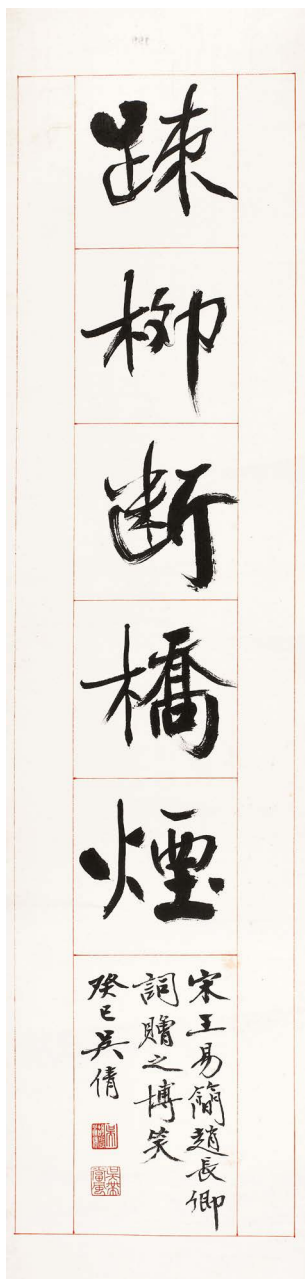 疎柳断橋煙
宋王易簡趙長卿
詞贈之博笑
癸巳吳倩